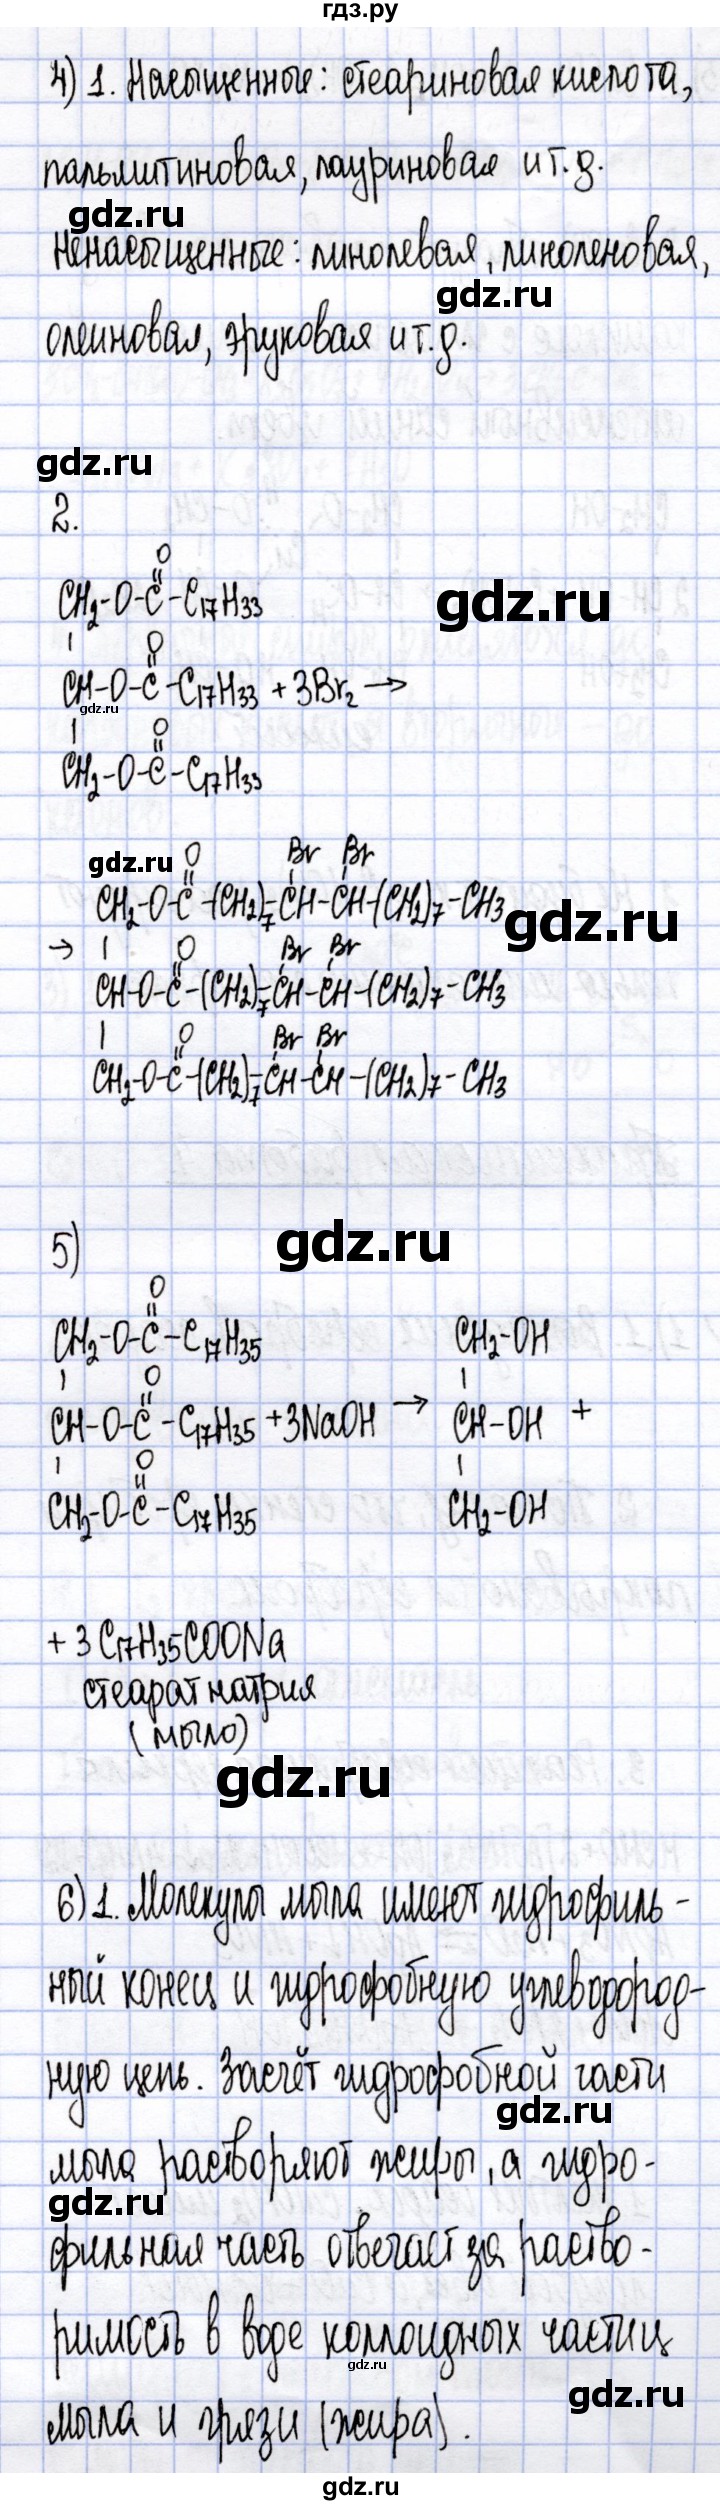 гдз.ру
4) 1. Насыщенные: стеариновая кислота,
пальмитиновая, лауриновая и т.д.
gdz.ru
Ненасыщенные: линолевая, линоленовая,
gdz.ru
олеиновая, эруковая и т.д.
gdz.ru
2.
O
CH2-O-C-C17H33
gdz.ru
O
CH-O-C-C17H33 +3Br2 →
gdz.ru
O
CH2-O-C-C17H33
gdz.ru
O Br Br
CH2-O-C-(CH2)7-CH-CH-(CH2)7-CH3
gdz.ru
→ O Br Br
CH-O-C-(CH2)7-CH-CH-(CH2)7-CH3
O Br Br
CH2-O-C-(CH2)7-CH-CH-(CH2)7-CH3
gdz.ru
5)
O
CH2-O-C-C17H35 CH2-OH
O
CH-O-C-C17H35 +3NaOH → CH-OH +
O
CH2-O-C-C17H35 CH2-OH
+ 3C17H35COONa
стеарат натрия
(мыло)
gdz.ru
6) 1. Молекулы мыла имеют гидрофиль-
ный конец и гидрофобную углеводород-
ную цепь. Засчёт гидрофобной части
gdz.ru
мыла растворяют жиры, а гидро-
gdz.ru
фильная часть отвечает за раство-
римость в воде коллоидных частиц
gdz.ru
gdz.ru
мыла и грязи (жира).
gdz.ru